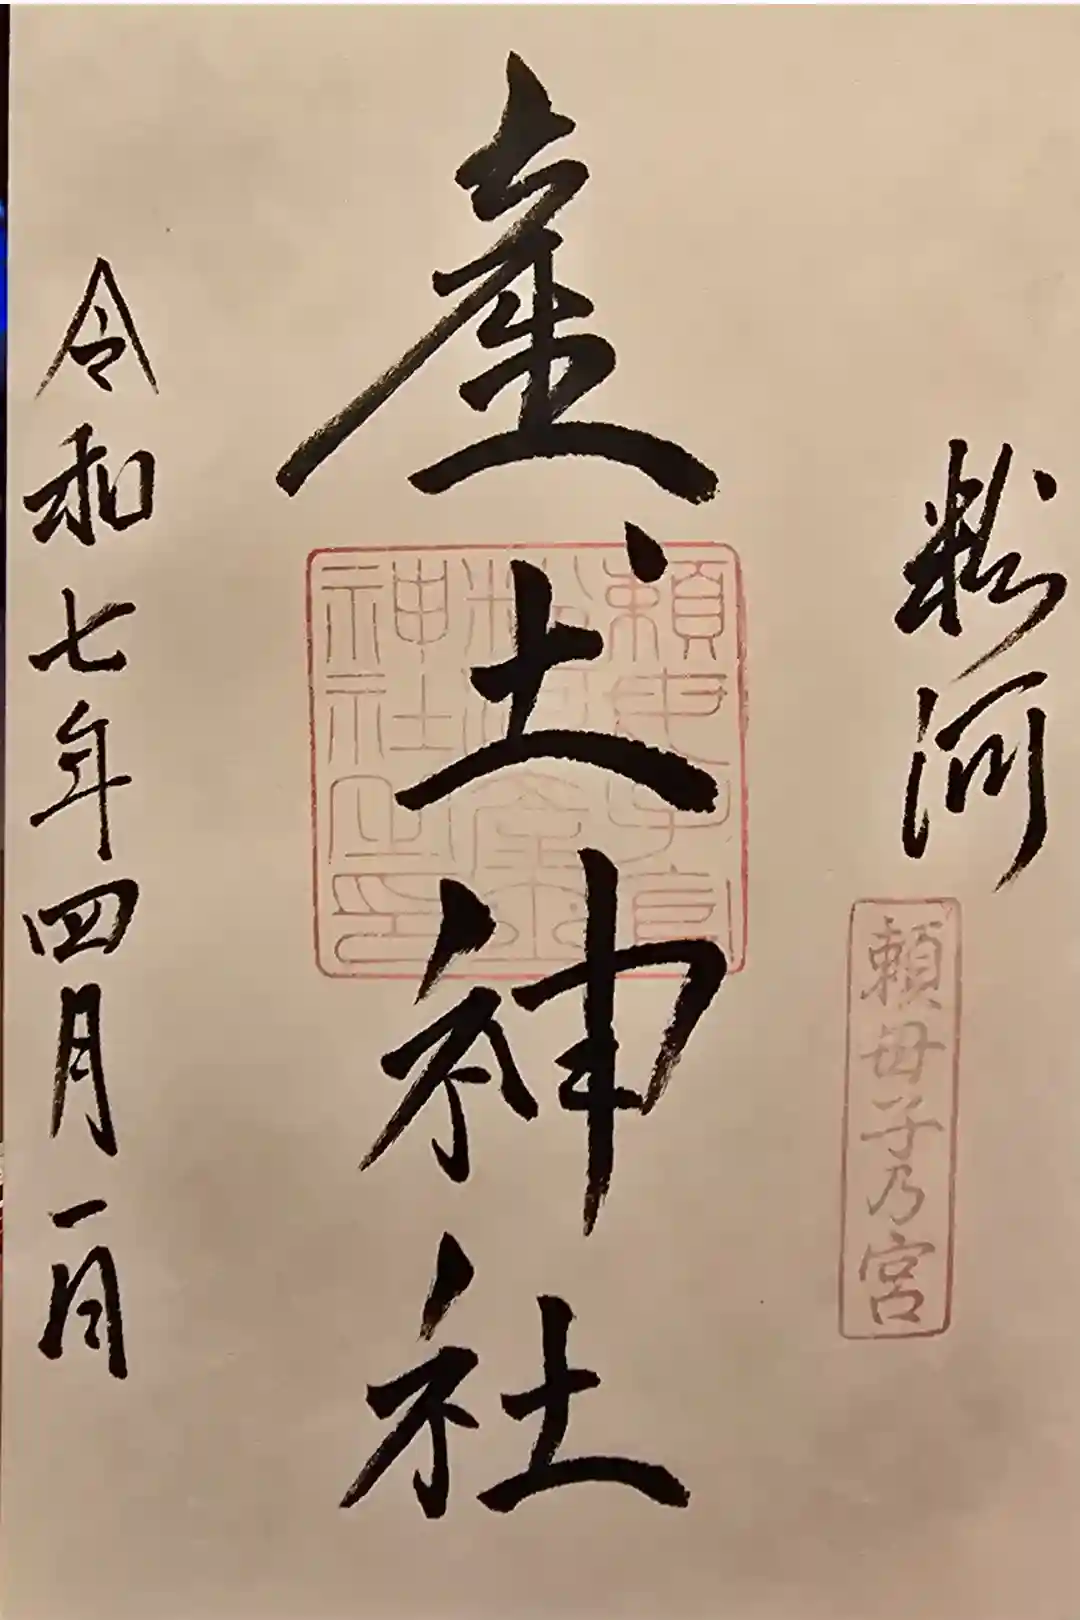 粉河
頼母子乃宮
産土神社
頼母子宮
粉河産土
神社之印
令和七年四月一日